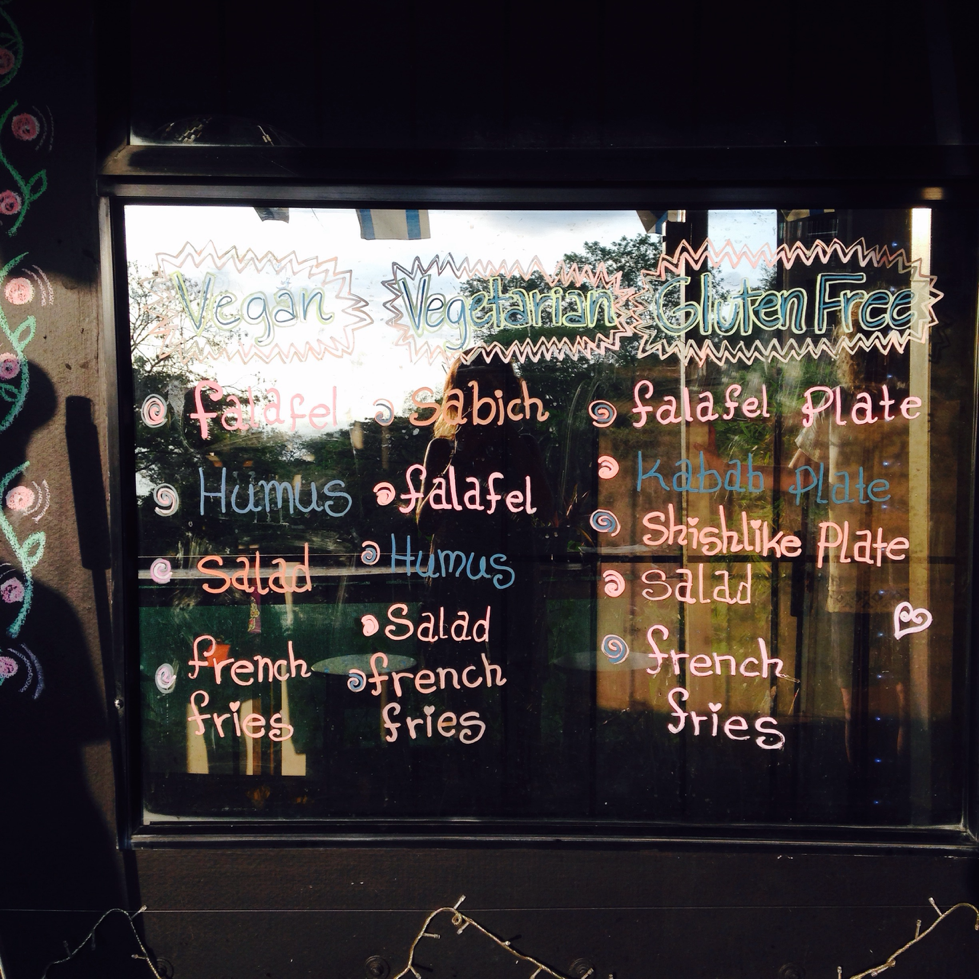 Vegan
falafel
Humus
Salad
french
fries
Vegetarian
Sabich
falafel
Humus
Salad
french
fries
Gluten Free
falafel Plate
Kabab Plate
Shishlike Plate
Salad
french
fries